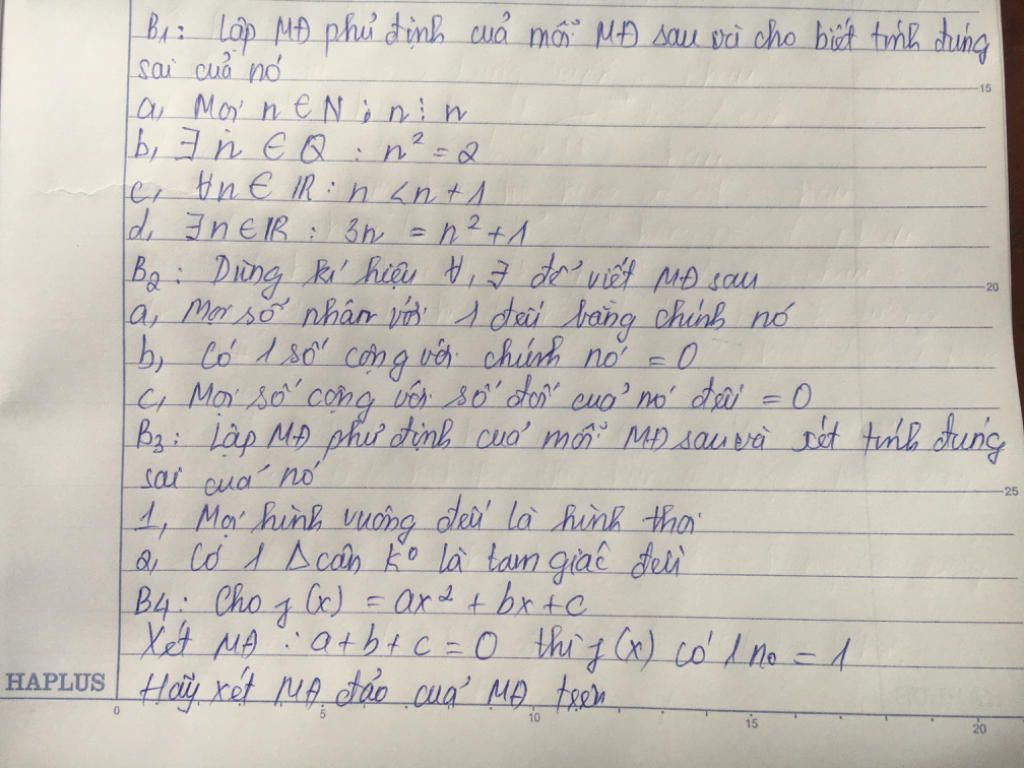 B1: Lập MĐ phủ định của mỗi MĐ sau và cho biết tính đúng
sai của nó
15
a, Mọi n ∈ N ; n ⋮ n
b, ∃ n ∈ Q : n² = 2
c, ∀n ∈ ℝ : n < n + 1
d, ∃n ∈ ℝ : 3n = n² + 1
B2: Dùng kí hiệu ∀, ∃ để viết MĐ sau
20
a, Mọi số nhân với 1 đều bằng chính nó
b, Có 1 số cộng với chính nó = 0
c, Mọi số cộng với số đối của nó đều = 0
B3: Lập MĐ phủ định của mỗi MĐ sau và xét tính đúng
sai của nó
25
1, Mọi hình vuông đều là hình thoi
2, Có 1 Δ cân k⁰ là tam giác đều
B4: Cho f(x) = ax² + bx + c
Xét MĐ : a + b + c = 0 thì f(x) có 1 n⁰ = 1
HAPLUS Hãy xét MĐ đảo của MĐ trên
0 5 10 15 20